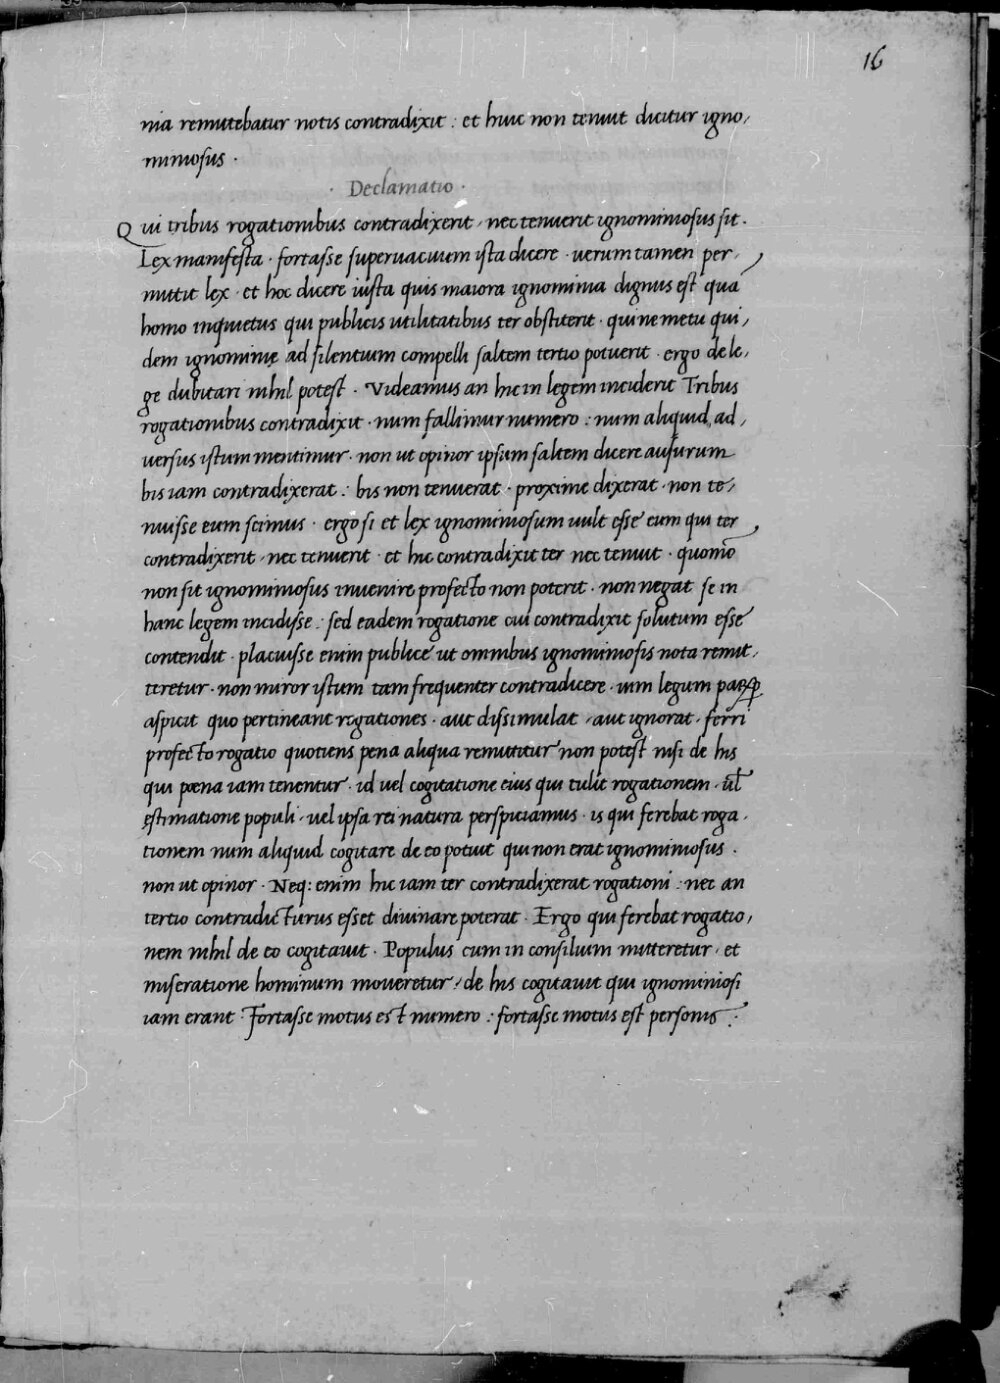 16
nia remittebatur notis contradixit : et hinc non tenuit dicitur igno,
miniosus ·
· Declamatio ·
Qui tribus rogationibus contradixerit, nec tenuerit ignominiosus sit .
Lex manifesta · fortasse superuacuum ista dicere · uerum tamen per,
mittit lex · et hoc dicere iusta quis maiora ignominia dignus est quā
homo inquietus qui publicis utilitatibus ter obstiterit · qui ne metu qui,
dem ignominię ad silentium compelli saltem tertio potuerit · ergo de le,
ge dubitari nihil potest · Videamus an hic in legem inciderit Tribus
rogationibus contradixit · num fallimur numero : num aliquid ad,
uersus istum mentimur · non ut opinor ipsum saltem dicere ausurum
bis iam contradixerat : bis non tenuerat · proxime dixerat · non te,
nuisse eum scimus · ergo si et lex ignominiosum uult esse eum qui ter
contradixerit, nec tenuerit · et hic contradixit ter nec tenuit · quomō
non sit ignominiosus inuenire profecto non poterit · non negat se in
hanc legem incidisse : sed eadem rogatione cui contradixit solutum esse
contendit · placuisse enim publice ut omnibus ignominiosis nota remit,
teretur · non miror istum tam frequenter contradicere · uim legum
aspicit quo pertineant rogationes · aut dissimulat, aut ignorat · ferri
profecto rogatio quotiens pena aliqua remittitur non potest nisi de his
qui pœna iam tenentur · id uel cogitatione eius qui tulit rogationem · ul̄
ęstimatione populi, uel ipsa rei natura perspiciamus · is qui ferebat roga ,
tionem num aliquid cogitare de eo potuit qui non erat ignominiosus .
non ut opinor · Neq: enim hic iam ter contradixerat rogationi : nec an
tertio contradicturus esset diuinare poterat · Ergo qui ferebat rogatio,
nem nihil de eo cogitauit · Populus cum in consilium mitteretur, et
miseratione hominum moueretur, de his cogitauit qui ignominiosi
iam erant · Fortasse motus est numero : fortasse motus est personis .